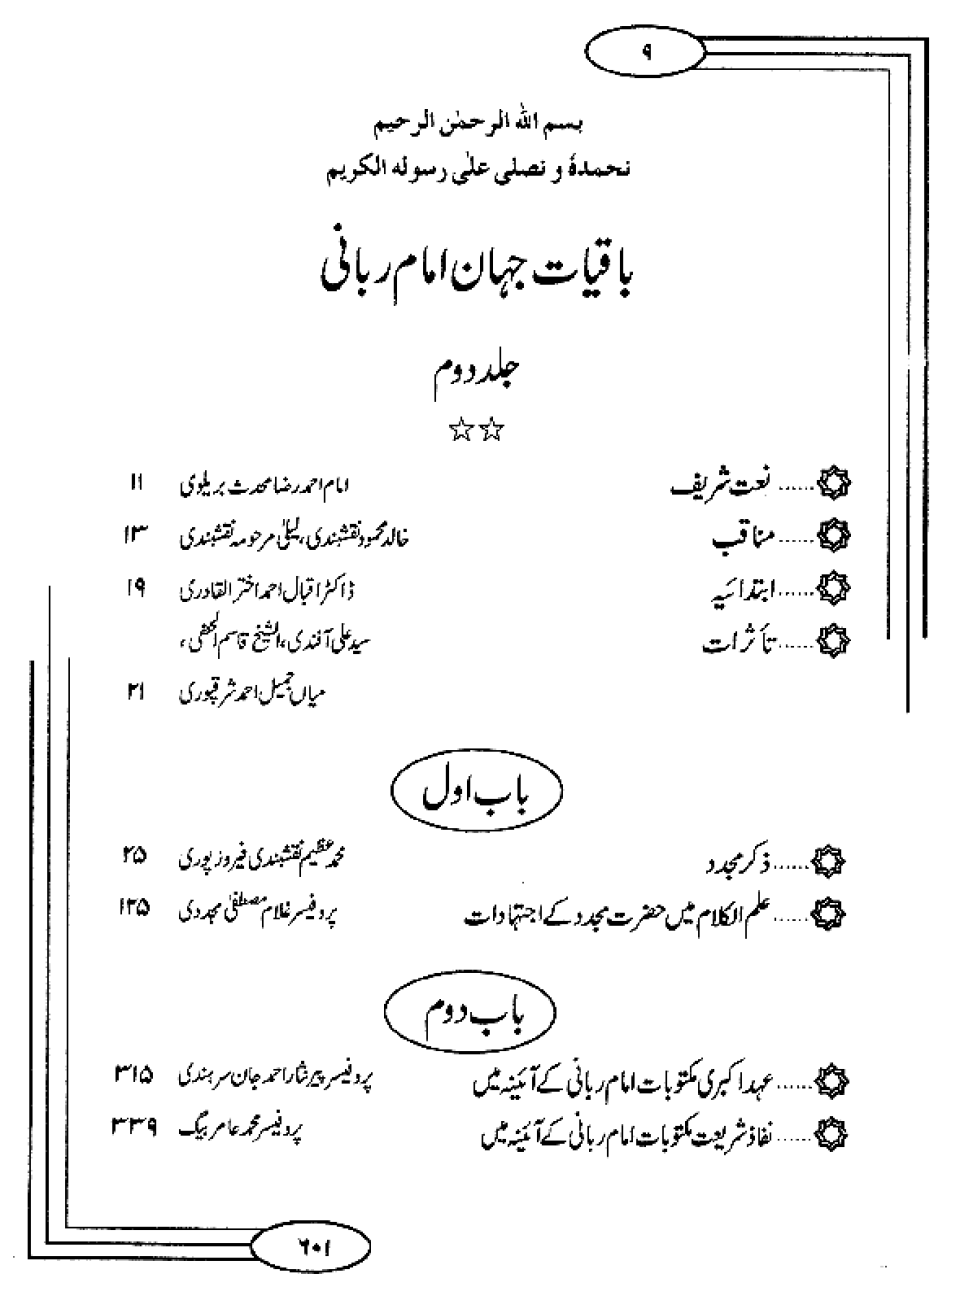 ۹
بسم الله الرحمٰن الرحیم
نحمدهٗ و نصلی علٰی رسوله الکریم
باقیات جہان امام ربانی
جلد دوم
☆☆
...... نعت شریف امام احمد رضا محدث بریلوی ۱۱
...... مناقب خالد محمود نقشبندی، لیلیٰ مرحومہ نقشبندی ۱۳
...... ابتدائیہ ڈاکٹر اقبال احمد اختر القادری ۱۹
...... تأثرات سید علی آفندی، الشیخ قاسم الحفی،
میاں جمیل احمد شرقپوری ۲۱
باب اول
...... ذکر مجدد محمد عظیم نقشبندی فیروز پوری ۲۵
...... علم الکلام میں حضرت مجدد کے اجتہادات پروفیسر غلام مصطفیٰ مجددی ۱۲۵
باب دوم
...... عہد اکبری مکتوبات امام ربانی کے آئینہ میں پروفیسر پیر نثار احمد جان سرہندی ۳۱۵
...... نفاذ شریعت مکتوبات امام ربانی کے آئینہ میں پروفیسر محمد عامر بیگ ۳۳۹
۶۰۱